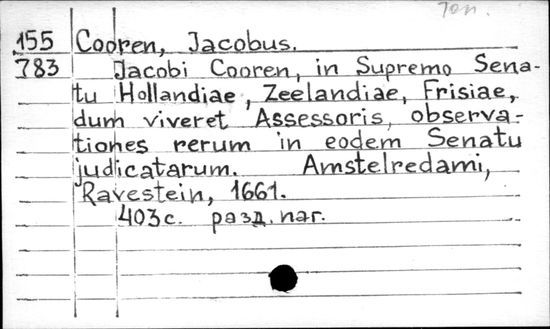 Топ.
155 Cooren, Jacobus.
783 Jacobi Cooren, in Supremo Sena-
tu Hollandiae, Zeelandiae, Frisiae,
dum viveret Assessoris, observa-
tiones rerum in eodem Senatu
judicatarum. Amstelredami,
Ravestein, 1661.
403 с. разд. паг.